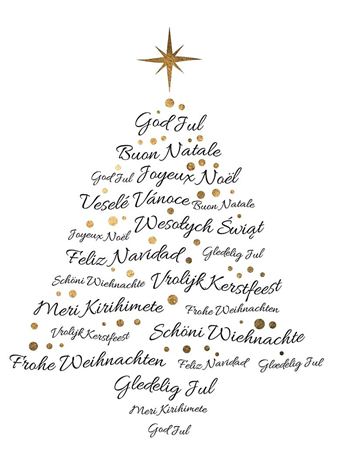 God Jul
Buon Natale
God Jul Joyeux Noël
Veselé Vánoce Buon Natale
Joyeux Noël Wesołych Świąt
Feliz Navidad Gledelig Jul
Schöni Wiehnachte Vrolijk Kerstfeest
Meri Kirihimete Frohe Weihnachten
Vrolijk Kerstfeest Schöni Wiehnachte
Frohe Weihnachten Feliz Navidad Glædelig Jul
Gledelig Jul
Meri Kirihimete
God Jul